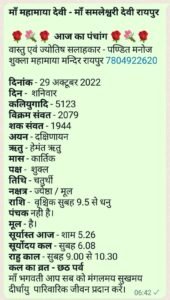 माँ महामाया देवी - माँ समलेश्वरी देवी रायपुर
🌹🌹🌹 आज का पंचांग 🌹🌹🌹
वास्तु एवं ज्योतिष सलाहकार - पण्डित मनोज
शुक्ला महामाया मन्दिर रायपुर 7804922620
दिनांक - 29 अक्टूबर 2022
दिन - शनिवार
कलियुगादि - 5123
विक्रम संवत - 2079
शक संवत - 1944
अयन - दक्षिणायन
ऋतु - हेमंत ऋतु
मास - कार्तिक
पक्ष - शुक्ल
तिथि - चतुर्थी
नक्षत्र - ज्येष्ठा / मूल
राशि - वृश्चिक सुबह 9.5 से धनु
पंचक नही है।
मूल - है।
सूर्यास्त आज - शाम 5.26
सूर्योदय कल - सुबह 6.08
राहु काल - सुबह 9.00 से 10.30
कल का व्रत - छठ पर्व
माँ भगवती आप सब को मंगलमय सुखमय
दीर्घायु पारिवारिक जीवन प्रदान करें।
06:42